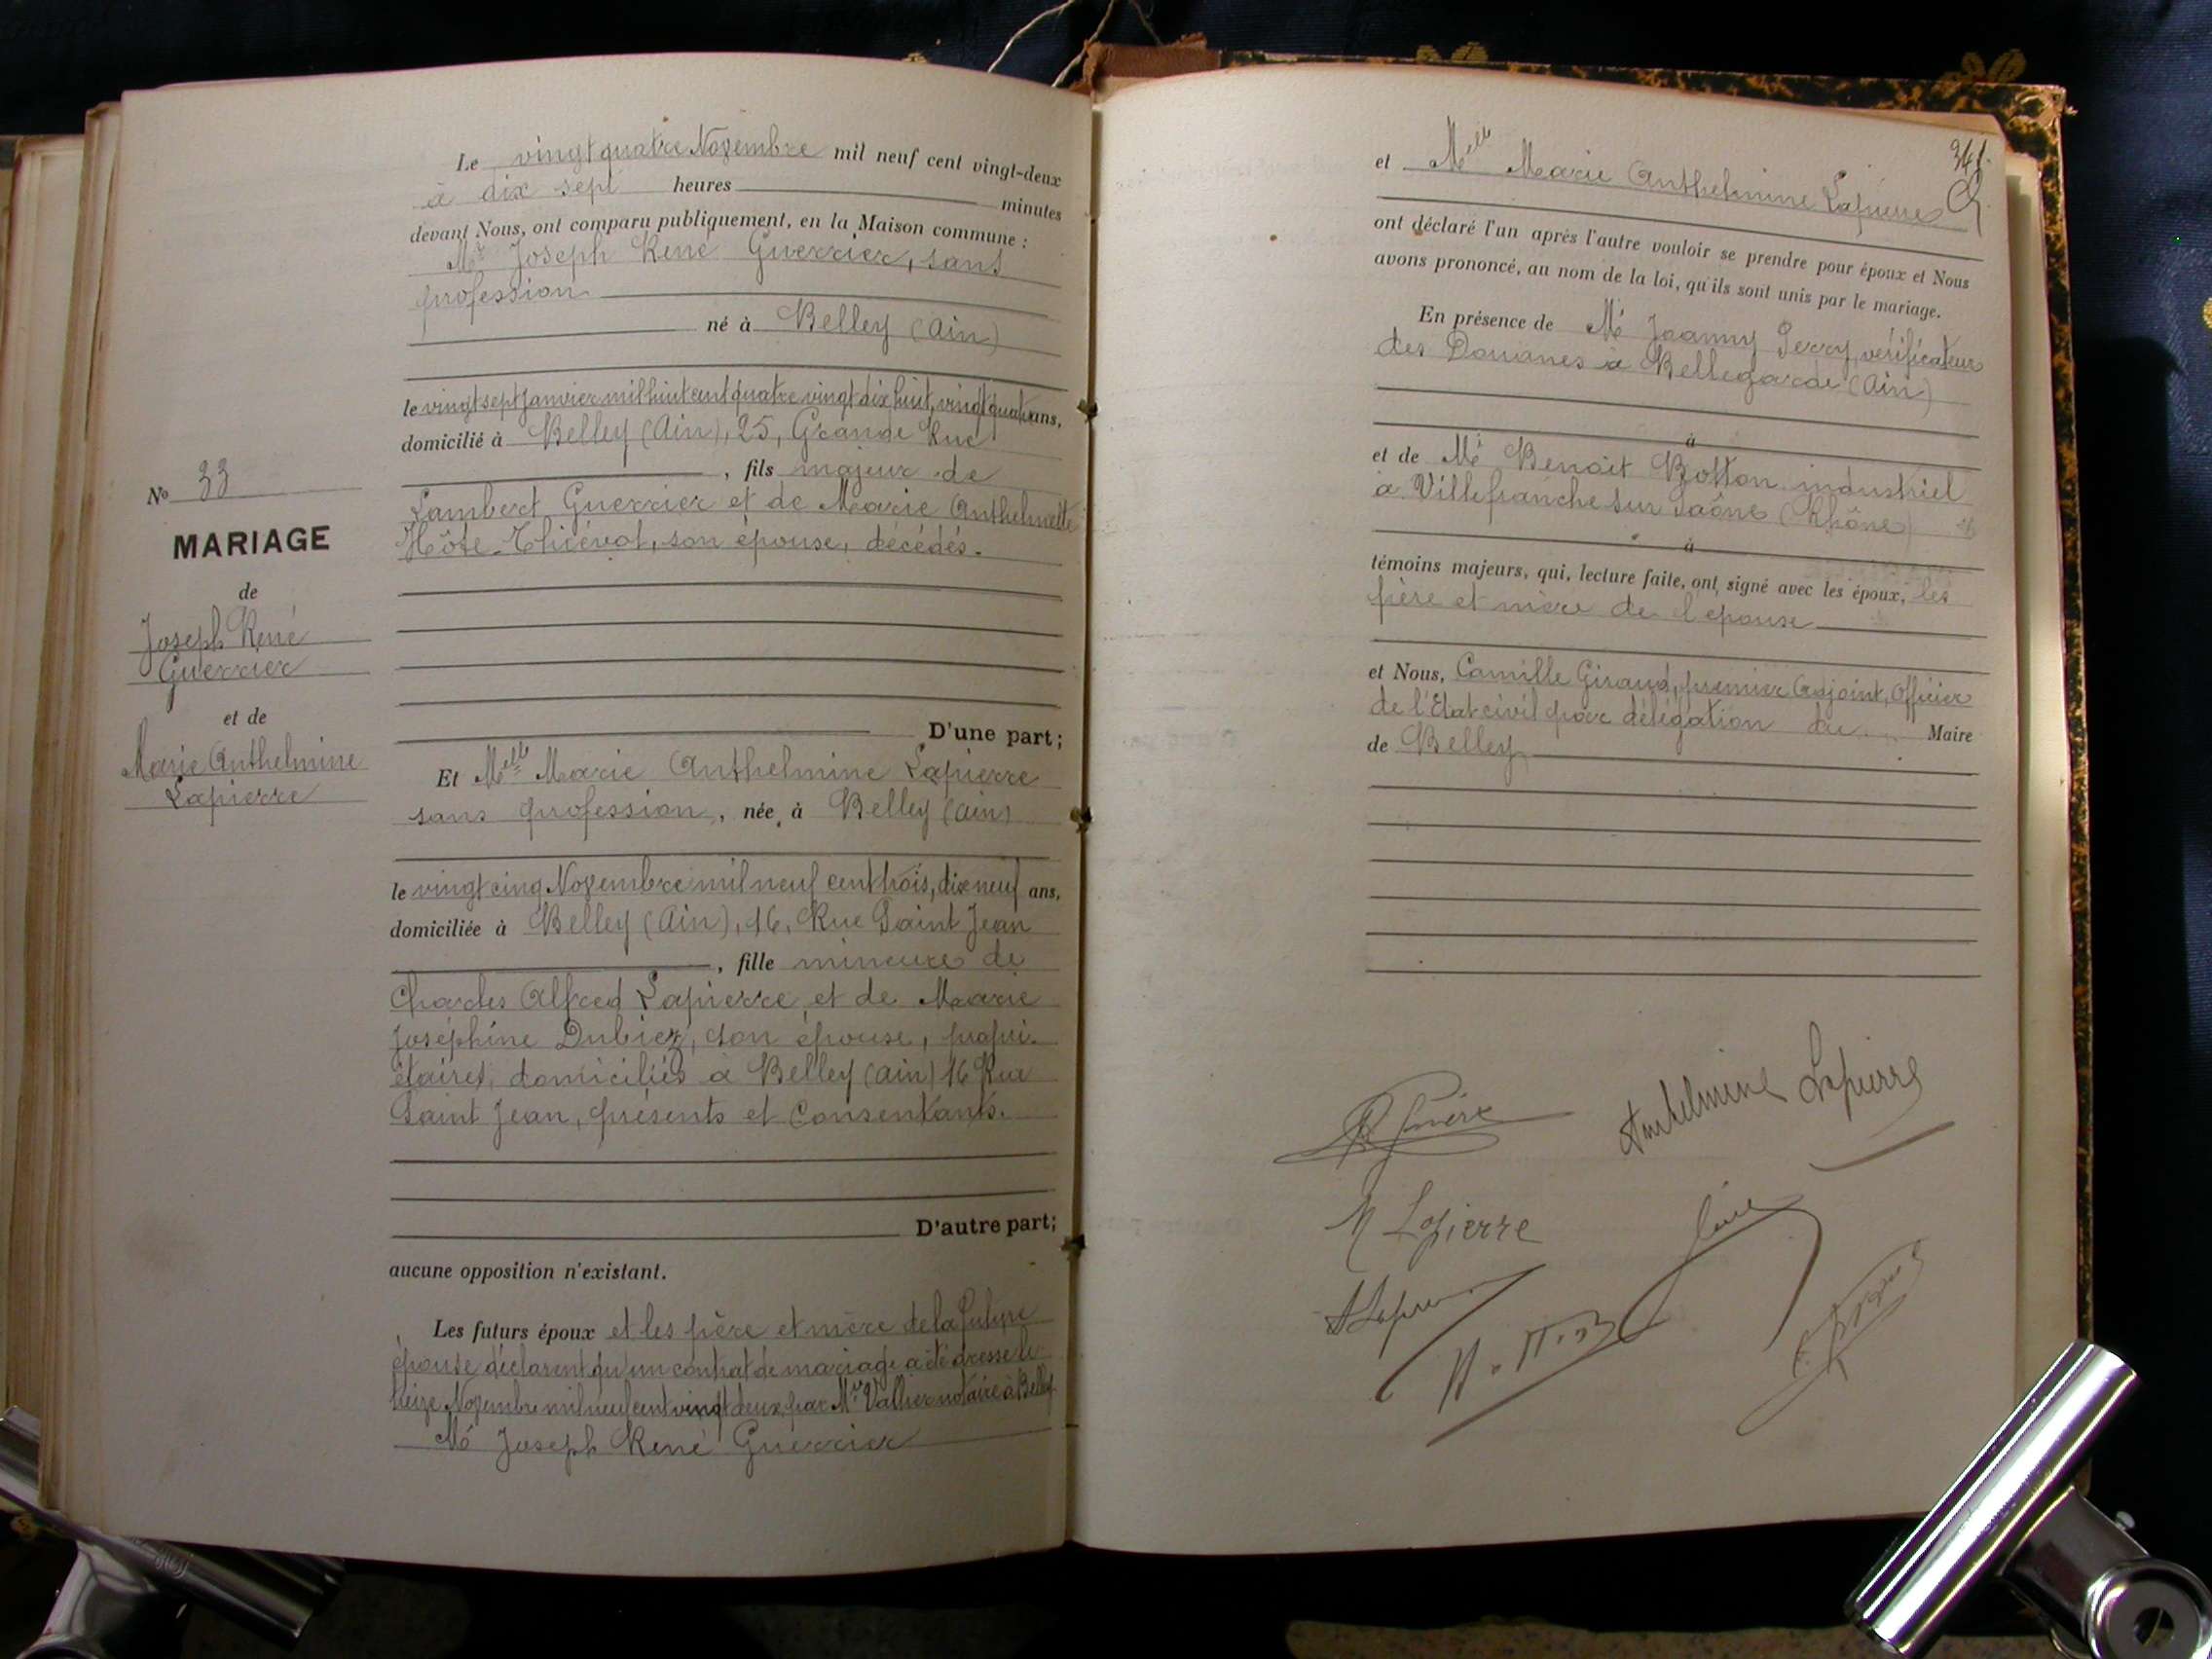 Le vingt quatre Novembre mil neuf cent vingt-deux
à dix sept heures minutes
devant Nous, ont comparu publiquement, en la Maison commune :
Mr Joseph René Guerrier, sans
profession
né à Belley (Ain)
le vingt sept Janvier mil huit cent quatre vingt dix huit, vingt quatre ans,
domicilié à Belley (Ain), 25, Grande Rue
, fils majeur de
Lambert Guerrier et de Marie Anthelmette
Hôte, son épouse, décédés.
D'une part;
Et Melle Marie Anthelmine Lapierre
sans profession, née à Belley (Ain)
le vingt cinq Novembre mil neuf cent trois, dix neuf ans,
domiciliée à Belley (Ain), 16, Rue Saint Jean
, fille mineure de
Charles Alfred Lapierre, et de Marie
Joséphine Dubiez, son épouse, propri-
étaires, domiciliés à Belley (Ain) 16 Rue
Saint Jean, présents et consentants.
D'autre part;
aucune opposition n'existant.
Les futurs époux et les père et mère de la future
épouse déclarent qu'un contrat de mariage a été dressé le
treize Novembre mil neuf cent vingt deux, par Me Vallier notaire à Belley
Mr Joseph René Guerrier
No 33
MARIAGE
de
Joseph René
Guerrier
et de
Marie Anthelmine
Lapierre
341.
et Melle Marie Anthelmine Lapierre
ont déclaré l'un après l'autre vouloir se prendre pour époux et Nous
avons prononcé, au nom de la loi, qu'ils sont unis par le mariage.
En présence de Mr Joanny Perry, vérificateur
des Douanes à Bellegarde (Ain)
à
et de Mr Benoit Botton industriel
à Villefranche sur Saône (Rhône)
à
témoins majeurs, qui, lecture faite, ont signé avec les époux, les
père et mère de l'épouse
et Nous, Camille Giraud, premier Adjoint, Officier
de l'Etat civil par délégation du Maire
de Belley
Anthelmine Lapierre
M Lapierre